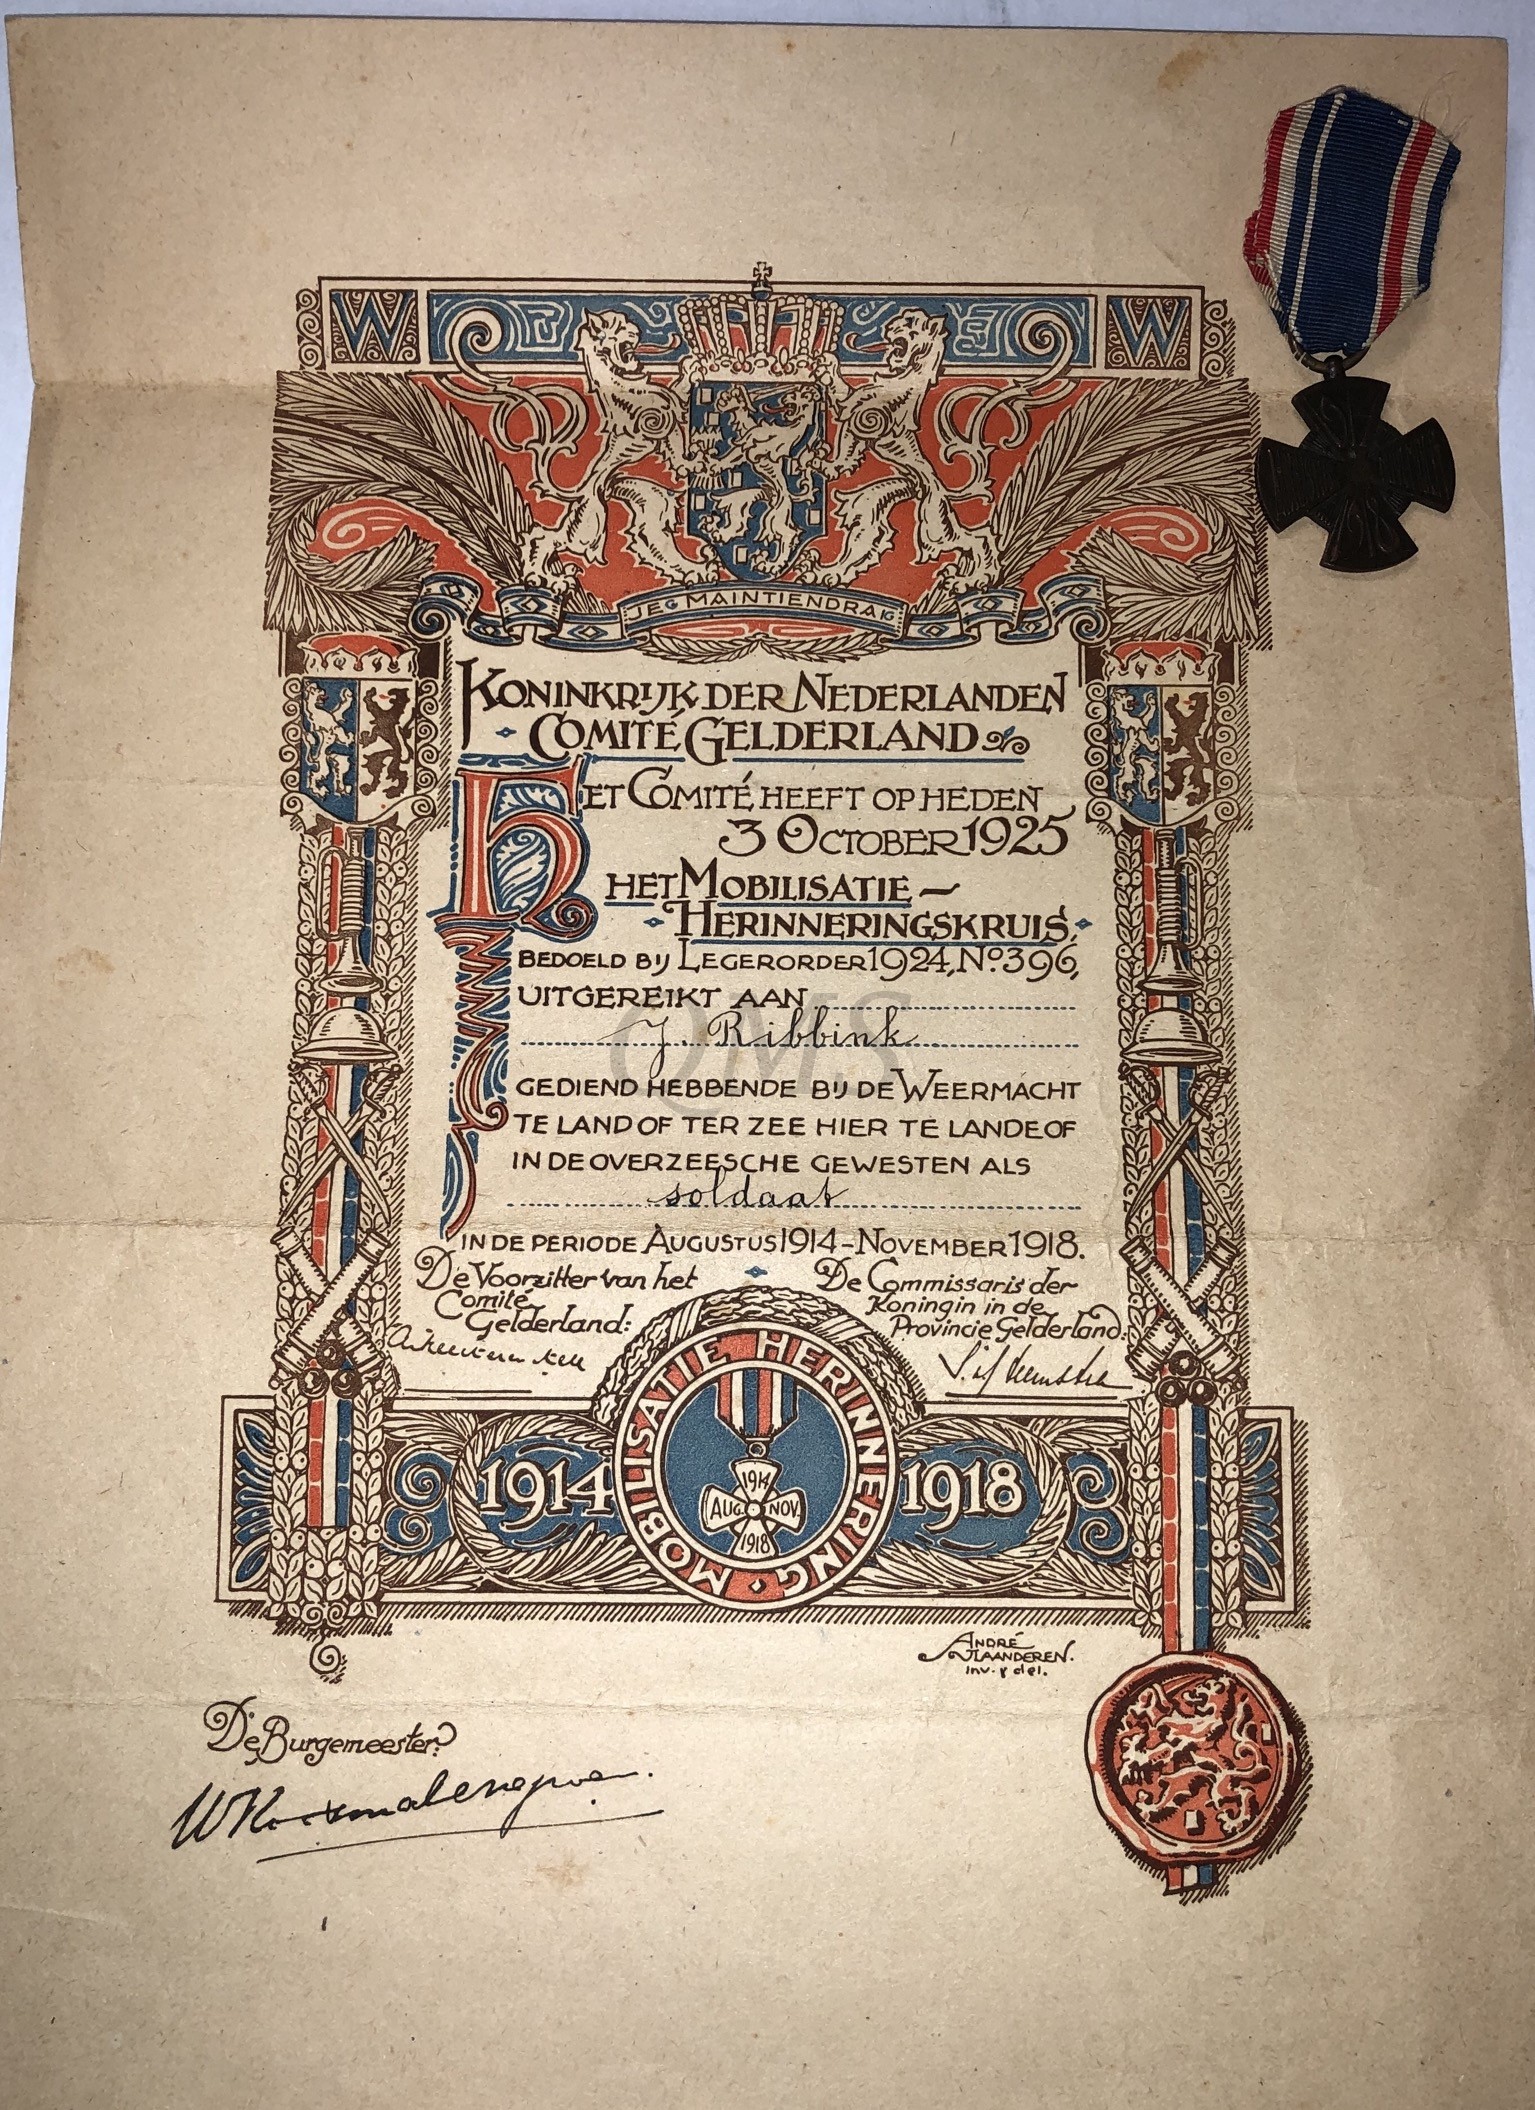 W W
JE MAINTIENDRAI
KONINKRIJK DER NEDERLANDEN
COMITÉ GELDERLAND
HET COMITÉ HEEFT OP HEDEN
3 OCTOBER 1925
HET MOBILISATIE-
HERINNERINGSKRUIS,
BEDOELD BIJ LEGERORDER 1924, No 396,
UITGEREIKT AAN
J. Ribbink
QMS
GEDIEND HEBBENDE BIJ DE WEERMACHT
TE LAND OF TER ZEE HIER TE LANDE OF
IN DE OVERZEESCHE GEWESTEN ALS
soldaat
IN DE PERIODE AUGUSTUS 1914-NOVEMBER 1918.
De Voorzitter van het
Comité
Gelderland:
De Commissaris der
Koningin in de
Provincie Gelderland:
MOBILISATIE HERINNERING
1914
1914
AUG. NOV.
1918
1918
ANDRÉ
VLAANDEREN.
inv. & del.
De Burgemeester: